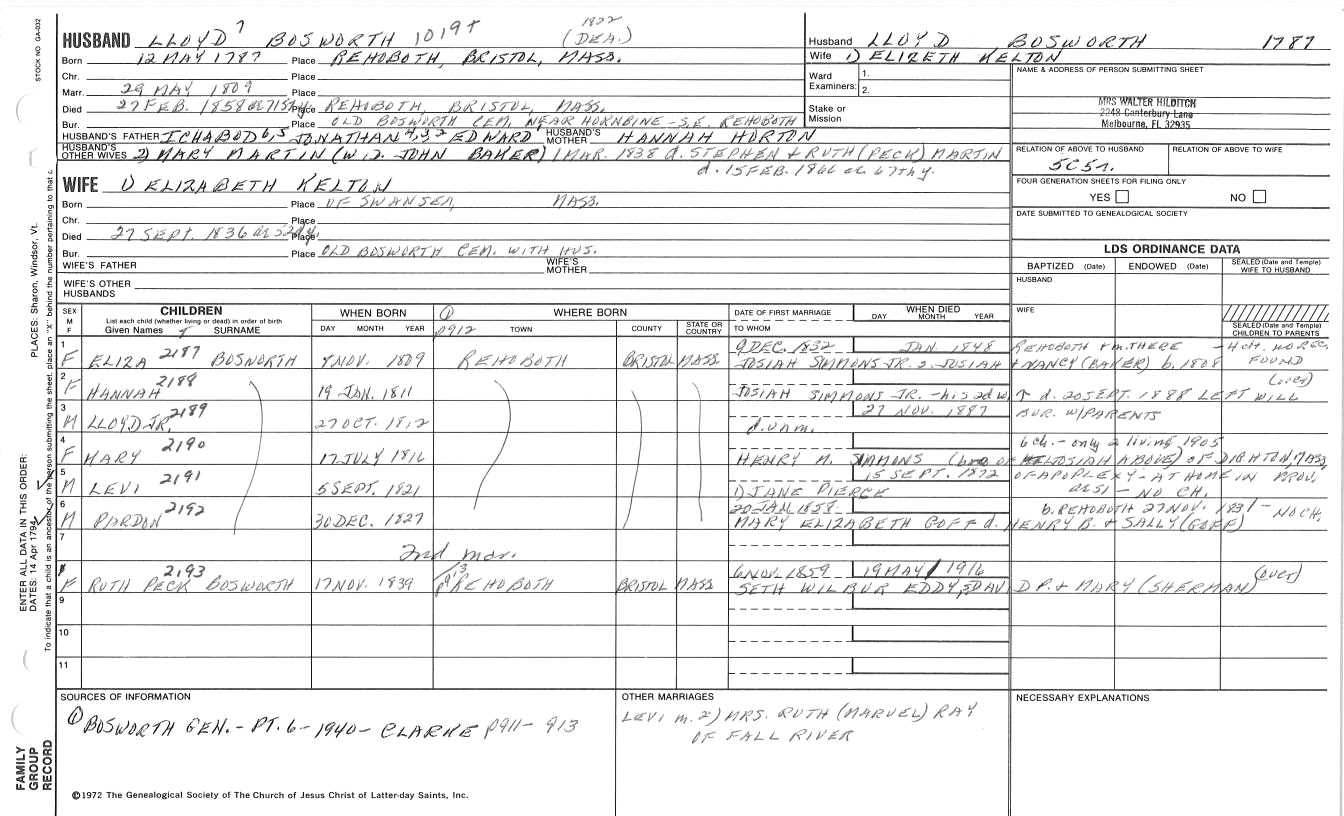 STOCK NO GA-032
HUSBAND LLOYD 7 BOSWORTH 1019+ 1822 (DEA.)
Born 12 MAY 1787 Place REHOBOTH, BRISTOL, MASS.
Chr. Place
Marr. 29 MAY 1809
Died 27 FEB. 1858 ae 71 Place REHOBOTH, BRISTOL, MASS.
Bur. Place OLD BOSWORTH CEM, NEAR HORNBINE - S.E. REHOBOTH
HUSBAND'S FATHER ICHABOD 6,5 JONATHAN 4,3,2 EDWARD HUSBAND'S MOTHER HANNAH HORTON
HUSBAND'S OTHER WIVES 2) MARY MARTIN (W. 2. JOHN BAKER) 1 MAR. 1838 d. STEPHEN + RUTH (PECK) MARTIN
d. 15 FEB. 1866 ae 67th y.
Husband LLOYD BOSWORTH 1787
Wife 1) ELIZETH KELTON
Ward Examiners: 1. 2.
Stake or Mission
NAME & ADDRESS OF PERSON SUBMITTING SHEET
MRS WALTER HILDITCH
2248 Canterbury Lane
Melbourne, FL 32935
RELATION OF ABOVE TO HUSBAND RELATION OF ABOVE TO WIFE
5C5r.
FOUR GENERATION SHEETS FOR FILING ONLY
YES NO
DATE SUBMITTED TO GENEALOGICAL SOCIETY
LDS ORDINANCE DATA
BAPTIZED (Date) ENDOWED (Date) SEALED (Date and Temple) WIFE TO HUSBAND
HUSBAND
WIFE
SEALED (Date and Temple) CHILDREN TO PARENTS
WIFE 1) ELIZABETH KELTON
Born Place OF SWANSEA, MASS.
Chr. Place
Died 27 SEPT. 1836 ae 52d y. Place
Bur. Place OLD BOSWORTH CEM. WITH HUS.
WIFE'S FATHER WIFE'S MOTHER
WIFE'S OTHER HUSBANDS
SEX M F CHILDREN List each child (whether living or dead) in order of birth Given Names SURNAME
WHEN BORN DAY MONTH YEAR
① p912 WHERE BORN TOWN COUNTY STATE OR COUNTRY
DATE OF FIRST MARRIAGE TO WHOM
WHEN DIED DAY MONTH YEAR
1 F ELIZA 2187 BOSWORTH 4 NOV. 1809 REHOBOTH BRISTOL MASS 9 DEC. 1832 JAN 1848 REHOBOTH + m. THERE - 4 ch. NO REC. FOUND
JOSIAH SIMMONS JR. s. JOSIAH + NANCY (BAKER) b. 1808
2 F HANNAH 2188 19 JAN. 1811 (over)
JOSIAH SIMMONS JR. - his 2d w. ↑ d. 20 SEPT. 1888 LEFT WILL
3 M LLOYD JR. 2189 27 OCT. 1812 27 NOV. 1887 BUR. W/PARENTS
d. unm.
4 F MARY 2190 17 JULY 1816 6 ch. - only 2 living 1905
HENRY M. SIMMONS (bro of JOSIAH ABOVE) OF DIGHTON, MASS
5 M LEVI 2191 5 SEPT. 1821 15 SEPT. 1872 OF APOPLEXY - AT HOME IN PROV.
1) JANE PIERCE ae 51 - NO CH.
6 M PARDON 2192 30 DEC. 1827 20 JAN 1858 b. REHOBOTH 27 NOV. 1831 - NO CH.
MARY ELIZABETH GOFF d. HENRY B. + SALLY (GOFF)
7
2nd mar.
F RUTH PECK BOSWORTH 2193 17 NOV. 1839 p913 REHOBOTH BRISTOL MASS 6 NOV. 1859 19 MAY 1916 (over)
SETH WILBUR EDDY, s. DAVID P. + MARY (SHERMAN)
9
10
11
SOURCES OF INFORMATION
① BOSWORTH GEN. - PT. 6 - 1940 - CLARKE p911 - 913
OTHER MARRIAGES
LEVI m. 2) MRS. RUTH (MARVEL) RAY
OF FALL RIVER
NECESSARY EXPLANATIONS
©1972 The Genealogical Society of The Church of Jesus Christ of Latter-day Saints, Inc.
FAMILY GROUP RECORD
ENTER ALL DATA IN THIS ORDER:
DATES: 14 Apr 1794
PLACES: Sharon, Windsor, Vt.
To indicate that a child is an ancestor of the person submitting the sheet, place an "X" behind the number pertaining to that c